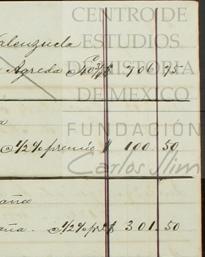 CENTRO DE
ESTUDIOS
DE HISTORIA
DE MEXICO
FUNDACIÓN
Carlos Slim
Valenzuela
Agreda 706 75
½% premio $ 100.50
½% $ 301.50